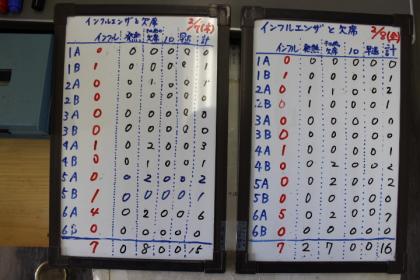 インフルエンザと欠席 3/7(木)
インフル 発熱 その他の欠席 10 早退 計
1A 0 0 0 0 0 0
1B 1 0 0 0 0 1
2A 0 0 1 0 0 1
2B 0 0 0 0
3A 0 0 0 0 0 0
3B 0 0 0 0 0 0
4A 1 0 2 0 0 3
4B 0 0 1 0 0 1
5A 0 0 2 0 0 2
5B 1 0 0 0 0 1
6A 4 0 2 0 0 6
6B 0 0 0 0 0 0
7 0 8 0 0 15
インフルエンザと欠席 3/8(金)
インフル 発熱 欠席 10 早退 計
1A 0 0 0 0 0 0
1B 1 0 0 0 0 1
2A 0 1 0 0 2
2B 0 1 0 0 0 1
3A 0 0 0 0 0 0
3B 0 0 0 0 0 0
4A 1 0 0 0 0 1
4B 0 0 2 0 0 2
5A 0 0 2 0 0 2
5B 0 0 0 0 0 0
6A 5 0 2 0 0 7
6B 0 0 0 0 0 0
7 2 7 0 0 16